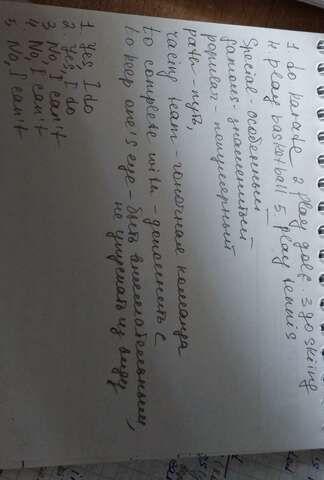 1 do karate 2 play golf 3 go skiing
4 play basketball 5 play tennis
Special - особенный
famous - знаменитый
popular - популярный
path - путь,
racing team - гоночная команда
to complete with - дополнить с
to keep one's eye - быть внимательным,
не упускать из виду
1 Yes I do
2 Yes, I do
3 No, I can't
4 No, I can't
5 No, I can't